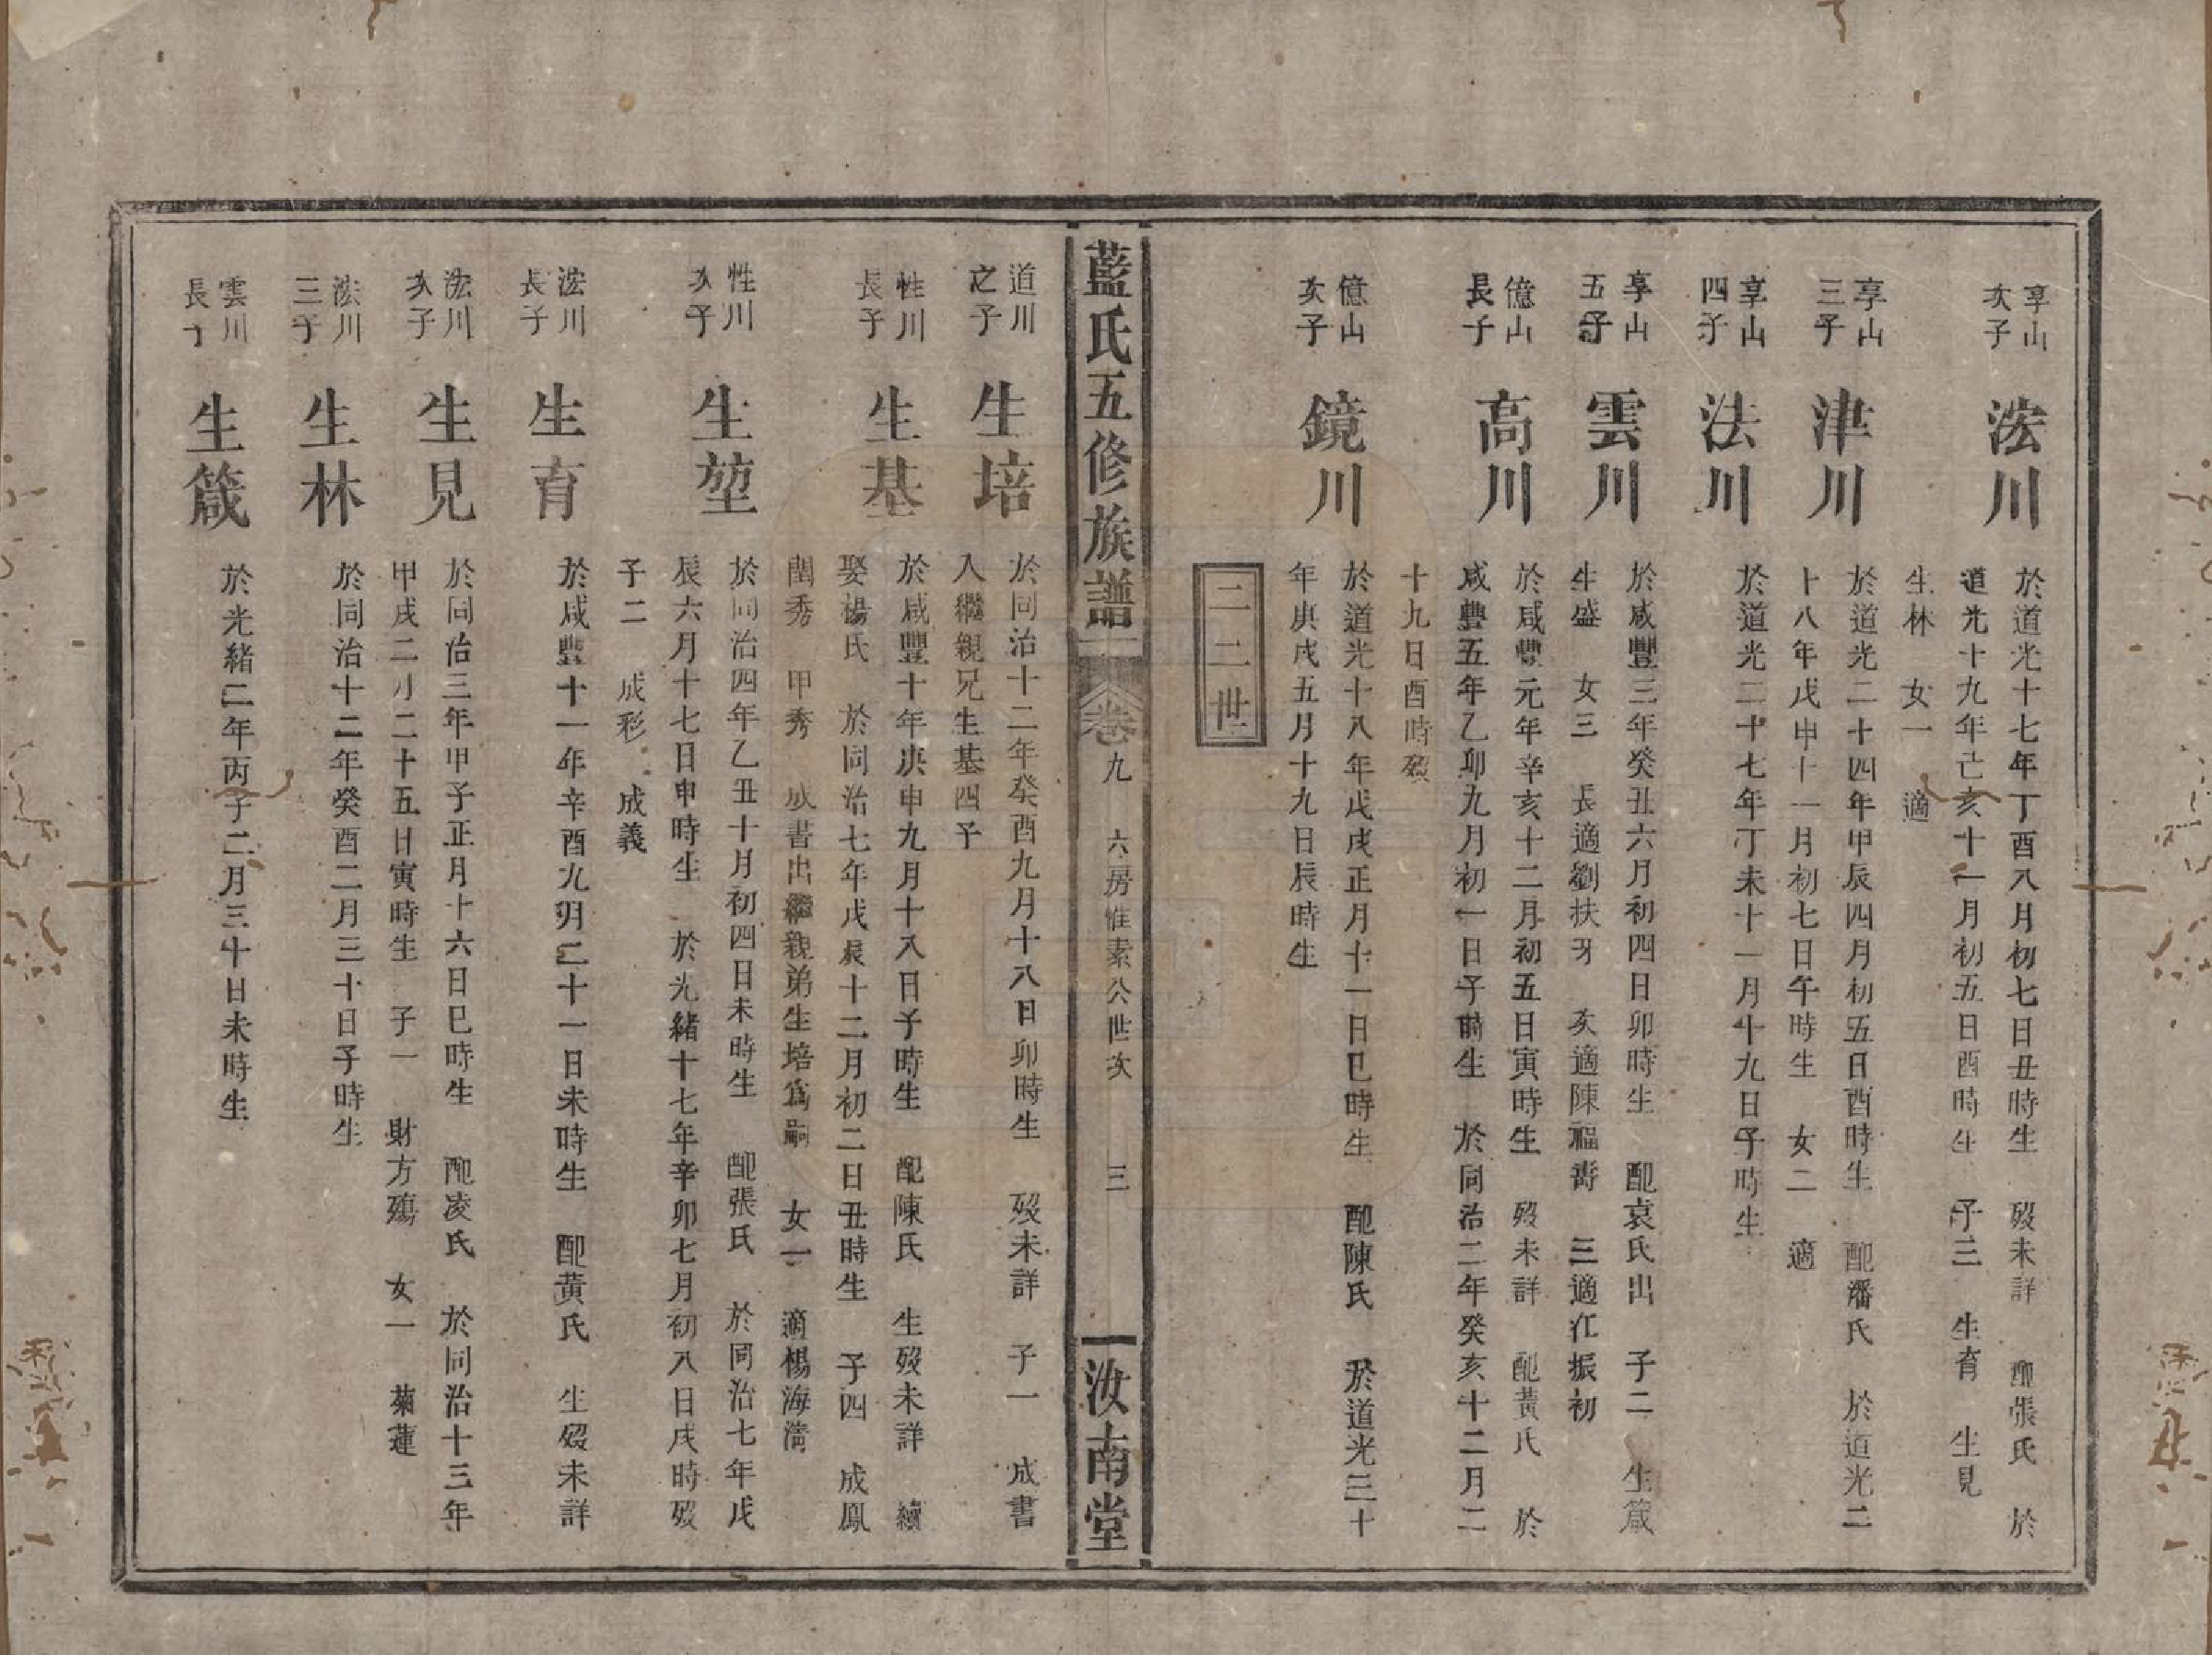 享山
次子
浤川
於道光十七年丁酉八月初七日丑時生 歿未詳 配張氏 於
道光十九年己亥十一月初五日酉時生 子三 生育 生見
生林 女一 適
享山
三子
津川
於道光二十四年甲辰四月初五日酉時生 配潘氏 於道光二
十八年戊申十一月初七日午時生 女二 適
享山
四子
法川
於道光二十七年丁未十一月十九日子時生
享山
五子
雲川
於咸豐三年癸丑六月初四日卯時生 配袁氏出 子二 生箴
生盛 女三 長適劉扶牙 次適陳福壽 三適江振初
億山
長子
高川
於咸豐元年辛亥十二月初五日寅時生 歿未詳 配黃氏 於
咸豐五年乙卯九月初一日子時生 於同治二年癸亥十二月二
十九日酉時歿
億山
次子
鏡川
於道光十八年戊戌正月十一日巳時生 配陳氏 於道光三十
年庚戌五月十九日辰時生
二二世
藍氏五修族譜 卷九 六房惟素公世次 三 汝南堂
道川
之子
生培
於同治十二年癸酉九月十八日卯時生 歿未詳 子一 成書
入繼親兄生基四子
性川
長子
生基
於咸豐十年庚申九月十八日子時生 配陳氏 生歿未詳 續
娶楊氏 於同治七年戊辰十二月初二日丑時生 子四 成鳳
閏秀 甲秀 成書出繼親弟生培爲嗣 女一 適楊海清
性川
次子
生堃
於同治四年乙丑十月初四日未時生 配張氏 於同治七年戊
辰六月十七日申時生 於光緒十七年辛卯七月初八日戌時歿
子二 成彩 成義
浤川
長子
生育
於咸豐十一年辛酉九月二十一日未時生 配黃氏 生歿未詳
浤川
次子
生見
於同治三年甲子正月十六日巳時生 配凌氏 於同治十三年
甲戌二月二十五日寅時生 子一 財方殤 女一 菊蓮
浤川
三子
生林
於同治十二年癸酉二月三十日子時生
雲川
長子
生箴
於光緒二年丙子二月三十日未時生